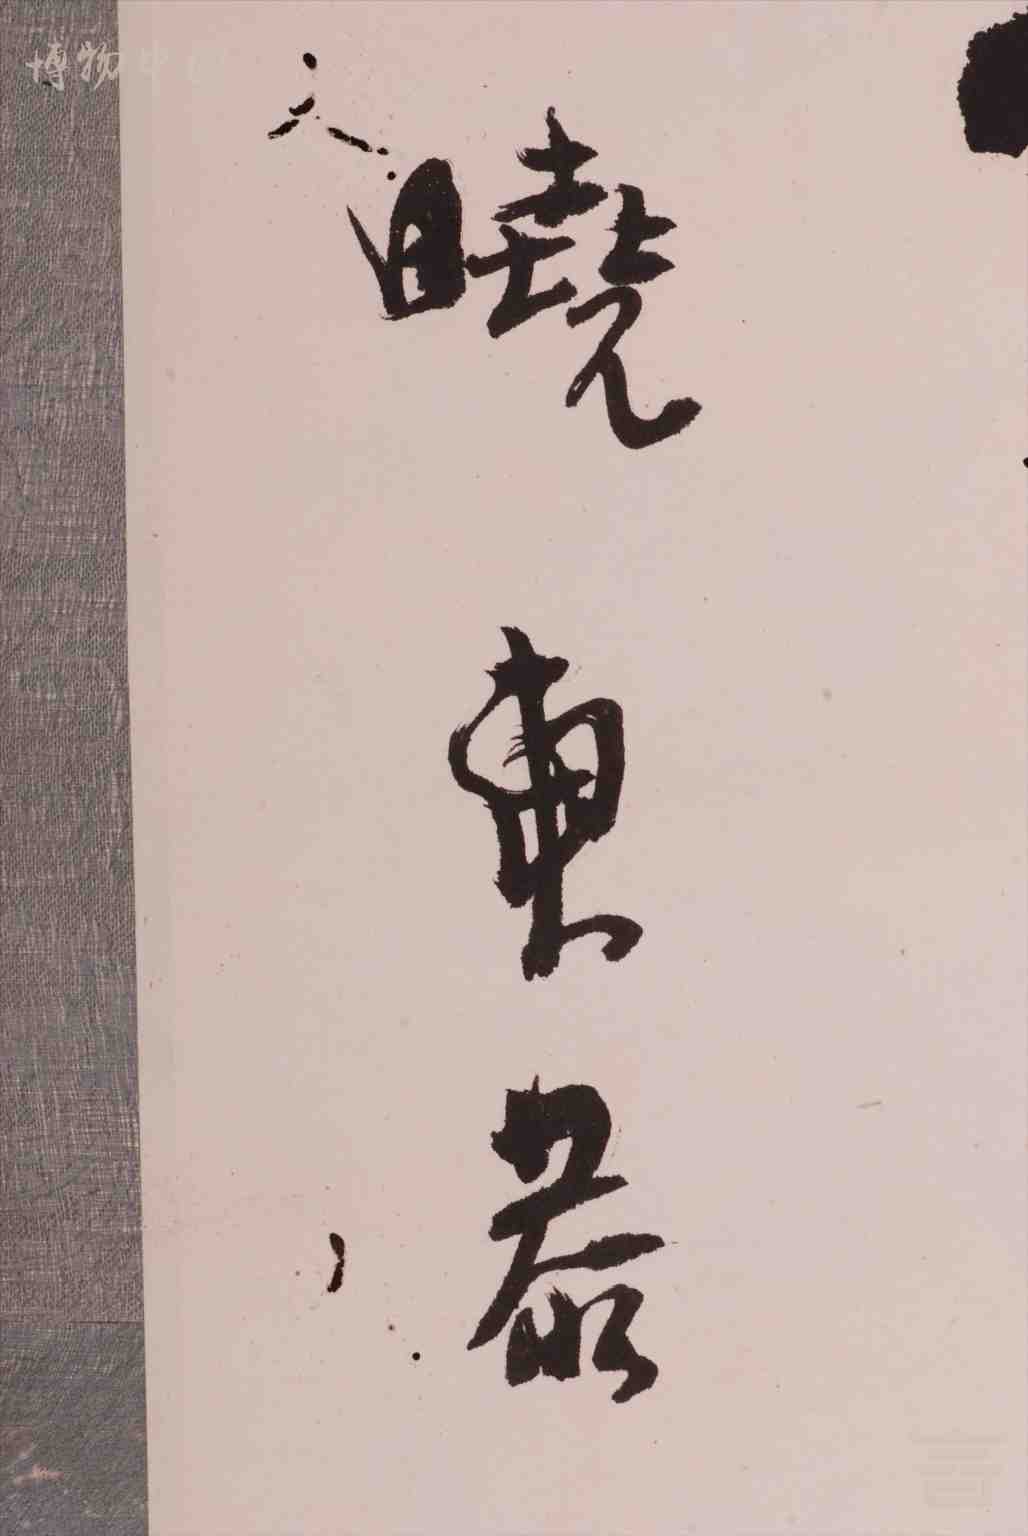 博物中
曉東恭